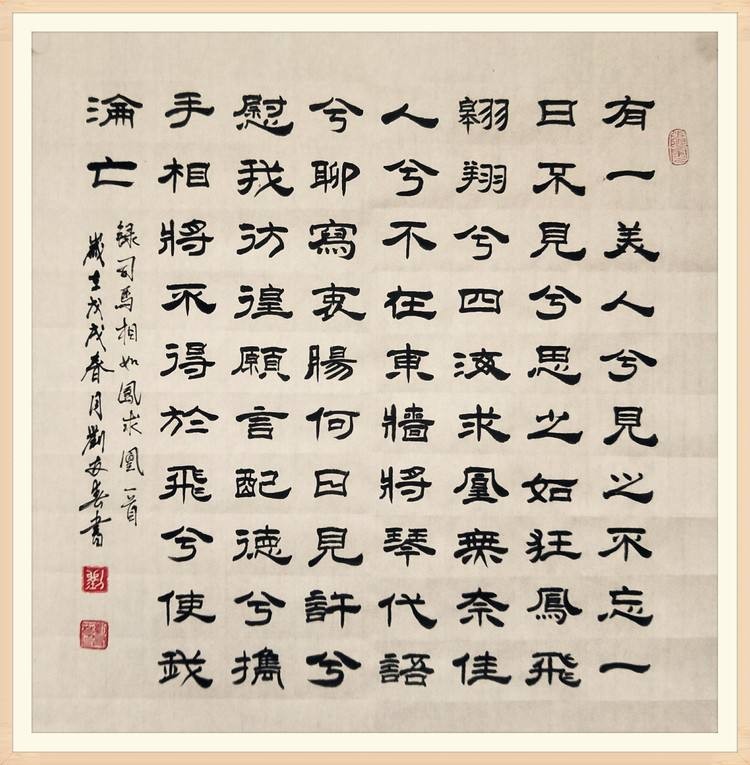 有一美人兮見之不忘一
日不見兮思之如狂鳳飛
翱翔兮四海求凰無奈佳
人兮不在東牆將琴代語
兮聊寫衷腸何日見許兮
慰我彷徨願言配德兮攜
手相將不得於飛兮使我
淪亡
錄司馬相如鳳求凰一首
歲在戊戌春月劉書
劉